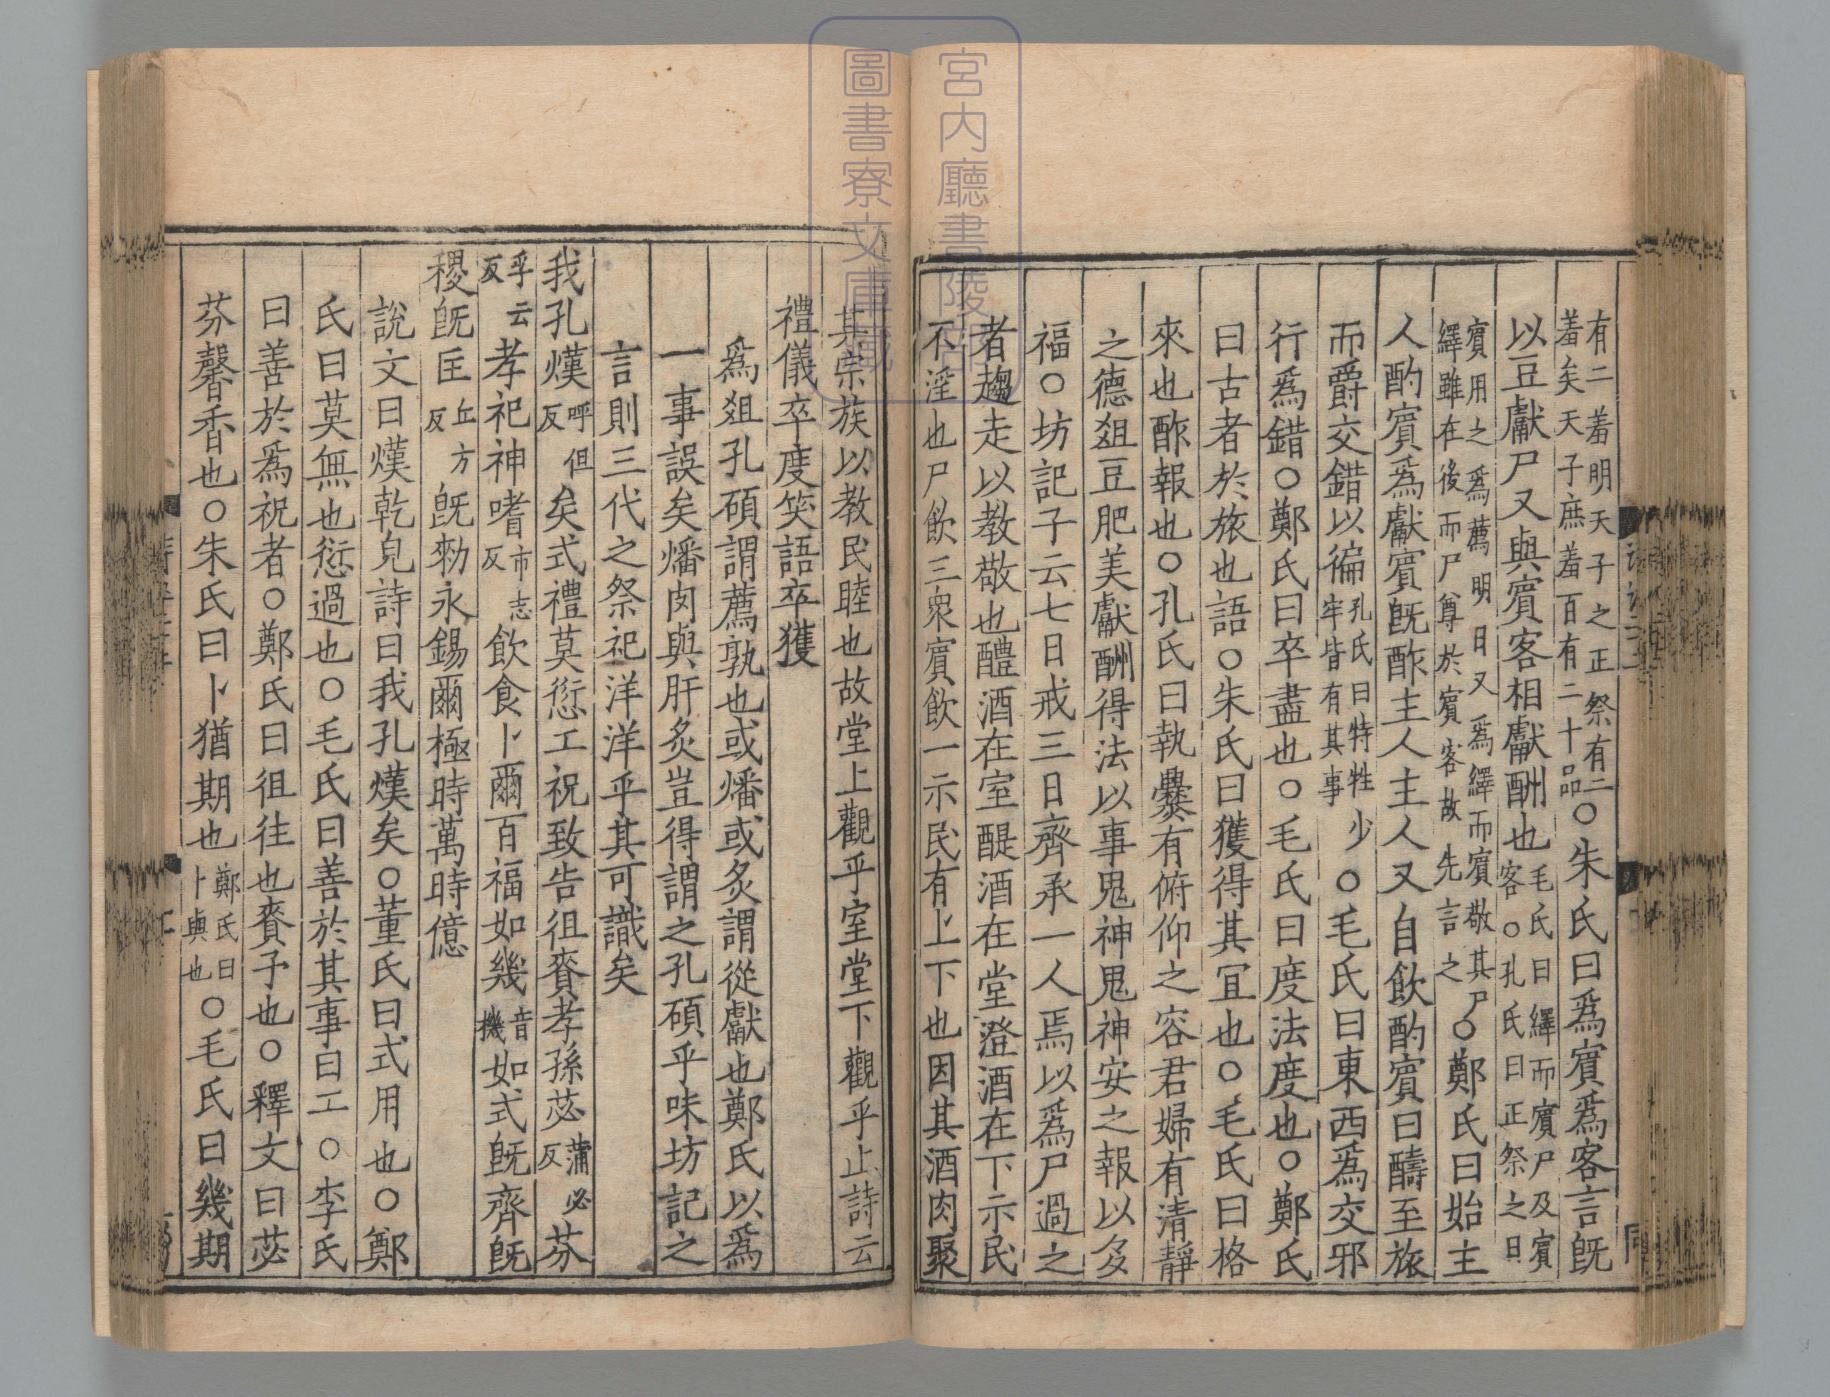 有二羞明天子之正祭有二
羞矣天子庶羞百有二十品○朱氏曰爲賓爲客言旣
以豆獻尸又與賓客相獻酬也毛氏曰繹而賓尸及賓
客○孔氏曰正祭之日
賓用之爲薦明日又爲繹而賓敬其尸
繹雖在後而尸尊於賓客故先言之○鄭氏曰始主
人酌賓爲獻賓旣酢主人主人又自飮酌賓曰醻至旅
而爵交錯以徧孔氏曰特牲少
牢皆有其事○毛氏曰東西爲交邪
行爲錯○鄭氏曰卒盡也○毛氏曰度法度也○鄭氏
曰古者於旅也語○朱氏曰獲得其宜也○毛氏曰格
來也酢報也○孔氏曰執爨有俯仰之容君婦有清靜
之德俎豆肥美獻酬得法以事鬼神鬼神安之報以多
福○坊記子云七日戒三日齊承一人焉以爲尸過之
者趨走以教敬也醴酒在室醍酒在堂澄酒在下示民
不淫也尸飮三衆賓飮一示民有上下也因其酒肉聚
其宗族以教民睦也故堂上觀乎室堂下觀乎上詩云
禮儀卒度笑語卒獲
爲俎孔碩謂薦孰也或燔或炙謂從獻也鄭氏以爲
一事誤矣燔肉與肝炙豈得謂之孔碩乎味坊記之
言則三代之祭祀洋洋乎其可識矣
我孔熯呼但
反矣式禮莫愆工祝致告徂賚孝孫苾蒲必
反芬
孚云
反孝祀神嗜市志
反飮食卜爾百福如幾音
機如式旣齊旣
稷旣匡丘方
反旣勑永錫爾極時萬時億
說文曰熯乾皃詩曰我孔熯矣○董氏曰式用也○鄭
氏曰莫無也愆過也○毛氏曰善於其事曰工○李氏
曰善於爲祝者○鄭氏曰徂往也賚予也○釋文曰苾
芬馨香也○朱氏曰卜猶期也鄭氏曰
卜與也○毛氏曰幾期
宮内廳書陵部
圖書寮文庫藏